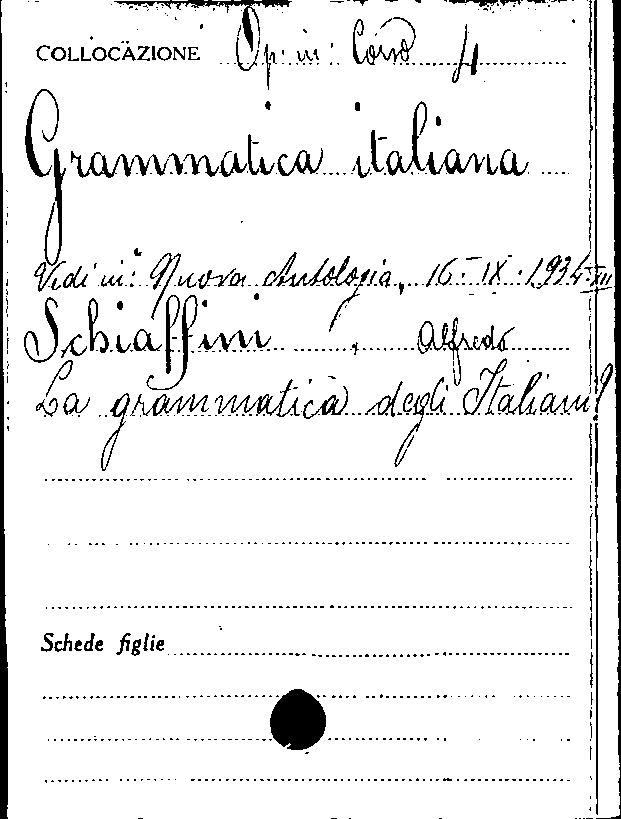 COLLOCAZIONE Op: in: Corso 4
Grammatica italiana
Vedi in: "Nuova Antologia„ 16-IX-1934-XII
Schiaffini, Alfredo
La grammatica degli Italiani
Schede figlie